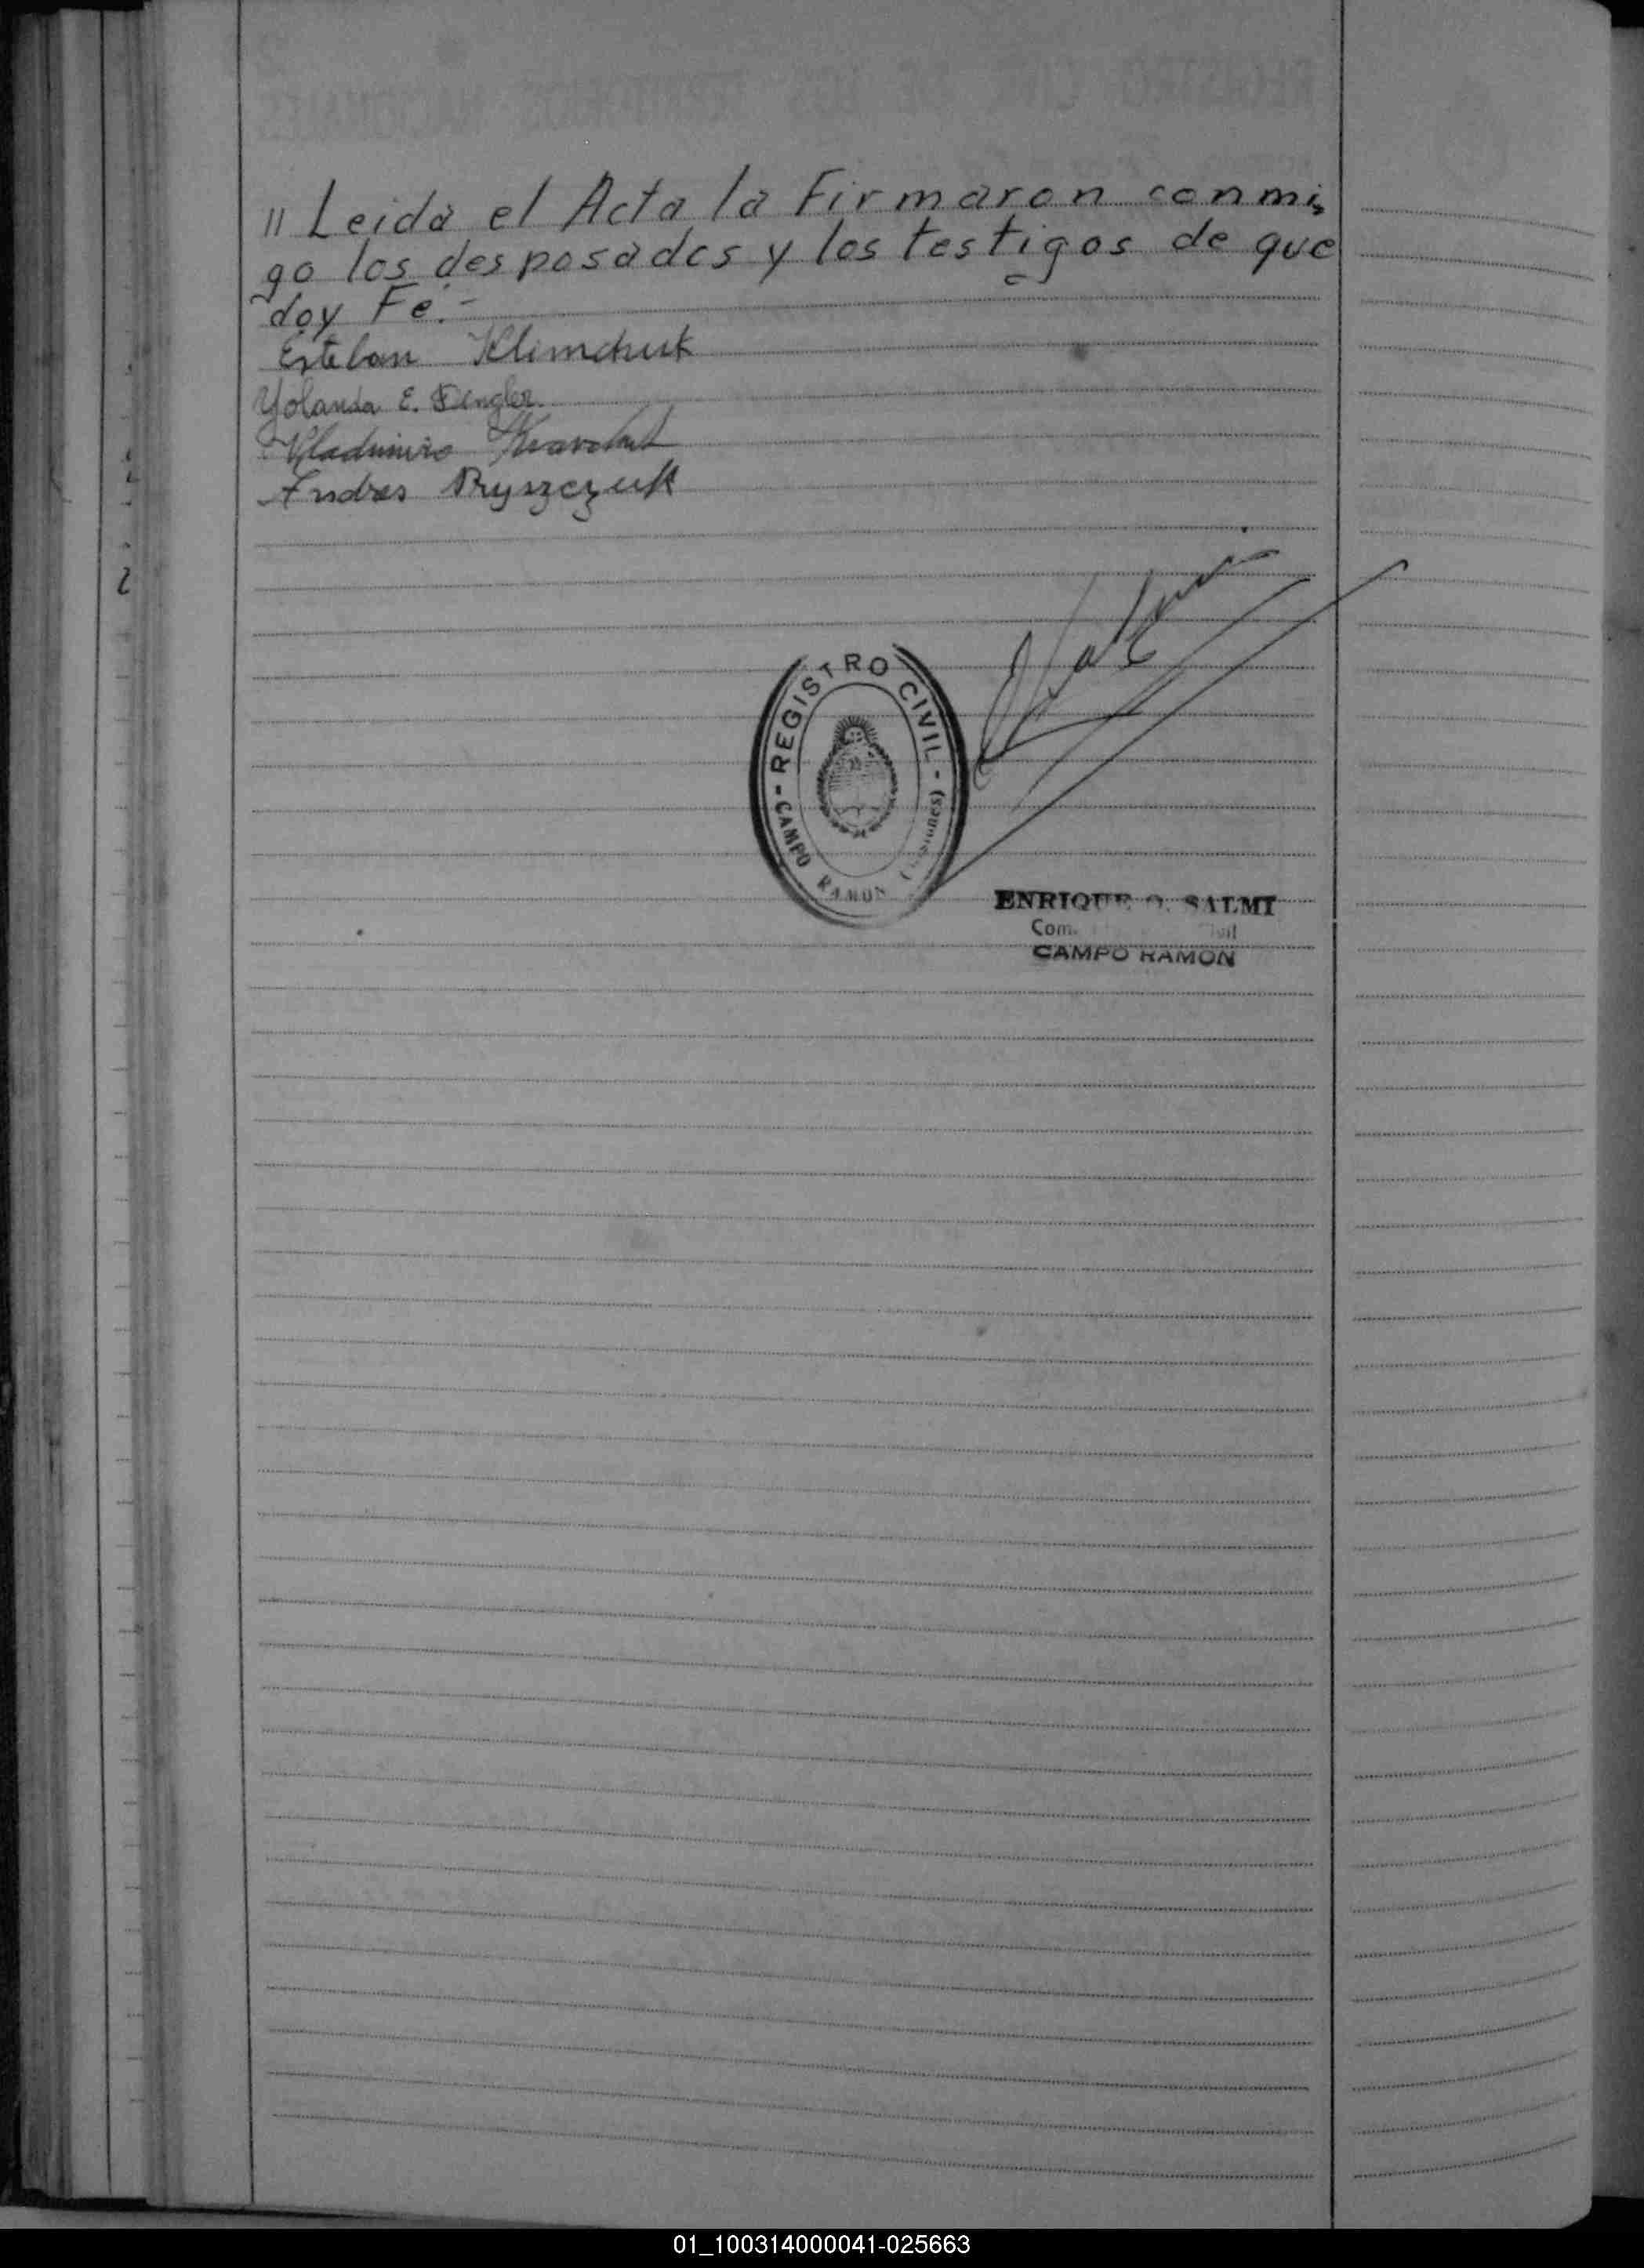 " Leida el Acta la Firmaron conmi
go los desposados y los testigos de que
doy Fe.-
Esteban Klimchuk
Yolanda E. Dengler
Vladimiro
Andres Pryszczuk
- REGISTRO CIVIL -
CAMPO RAMON (Misiones)
ENRIQUE O. SALMI
Com. Civil
CAMPO RAMON
01_100314000041-025663